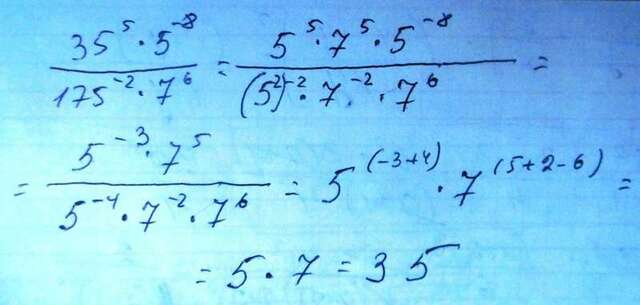 \frac{35^5 \cdot 5^{-8}}{175^{-2} \cdot 7^6} = \frac{5^5 \cdot 7^5 \cdot 5^{-8}}{(5^2)^{-2} \cdot 7^{-2} \cdot 7^6} =
= \frac{5^{-3} \cdot 7^5}{5^{-4} \cdot 7^{-2} \cdot 7^6} = 5^{(-3+4)} \cdot 7^{(5+2-6)} =
= 5 \cdot 7 = 35